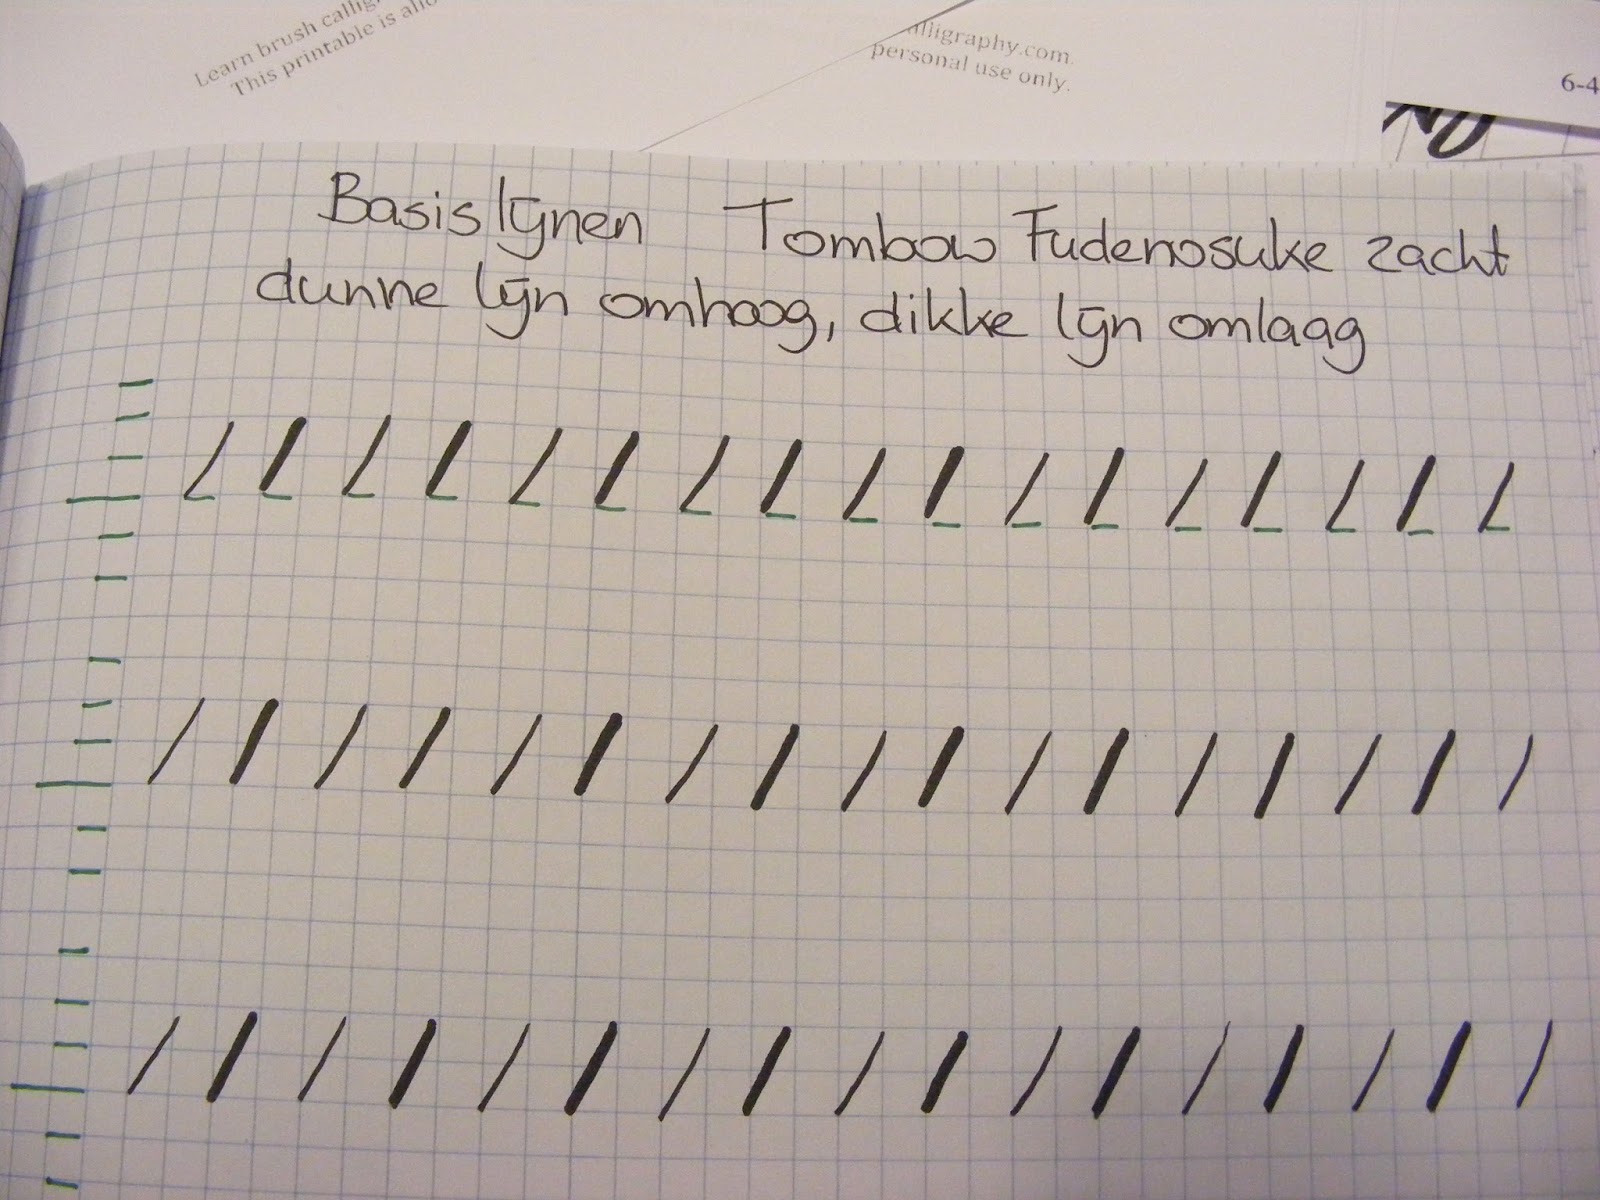 Learn brush
This printable is
alligraphy.com.
personal use only.
6-4
Basislijnen Tombow Fudenosuke zacht
dunne lijn omhoog, dikke lijn omlaag